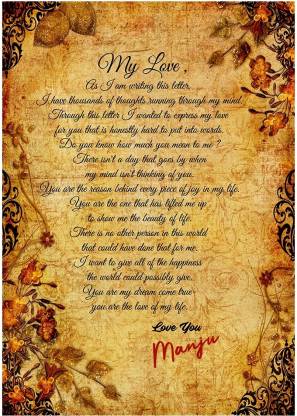 My Love,
As I am writing this letter,
I have thousands of thoughts running through my mind.
Through this letter I wanted to express my love
for you that is honestly hard to put into words.
Do you know how much you mean to me ?
There isn't a day that goes by when
my mind isn't thinking of you.
You are the reason behind every piece of joy in my life.
You are the one that has lifted me up
to show me the beauty of life.
There is no other person in this world
that could have done that for me.
I want to give all of the happiness
the world could possibly give.
You are my dream come true
you are the love of my life.
Love You
Manju